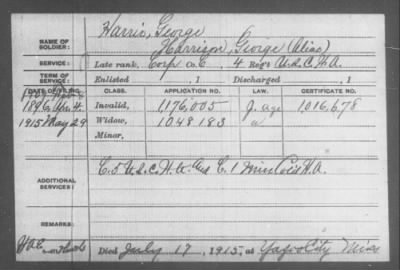 NAME OF SOLDIER: Harris, George
Harrison, George (Alias)
SERVICE: Late rank, Corp Co. C, 4 Reg't U.S.C.H.A.
TERM OF SERVICE: Enlisted , 1 Discharged , 1
DATE OF FILING. CLASS. APPLICATION NO. LAW. CERTIFICATE NO.
1896 4. Invalid, 1176,005 J. age 1016,678
1915 May 29 Widow, 1048183
Minor,
ADDITIONAL SERVICES: C. 5 U.S.C.H.A. and C. 1 Miss Col'd H.A.
REMARKS:
Died July 17, 1915, at Yazoo City Miss